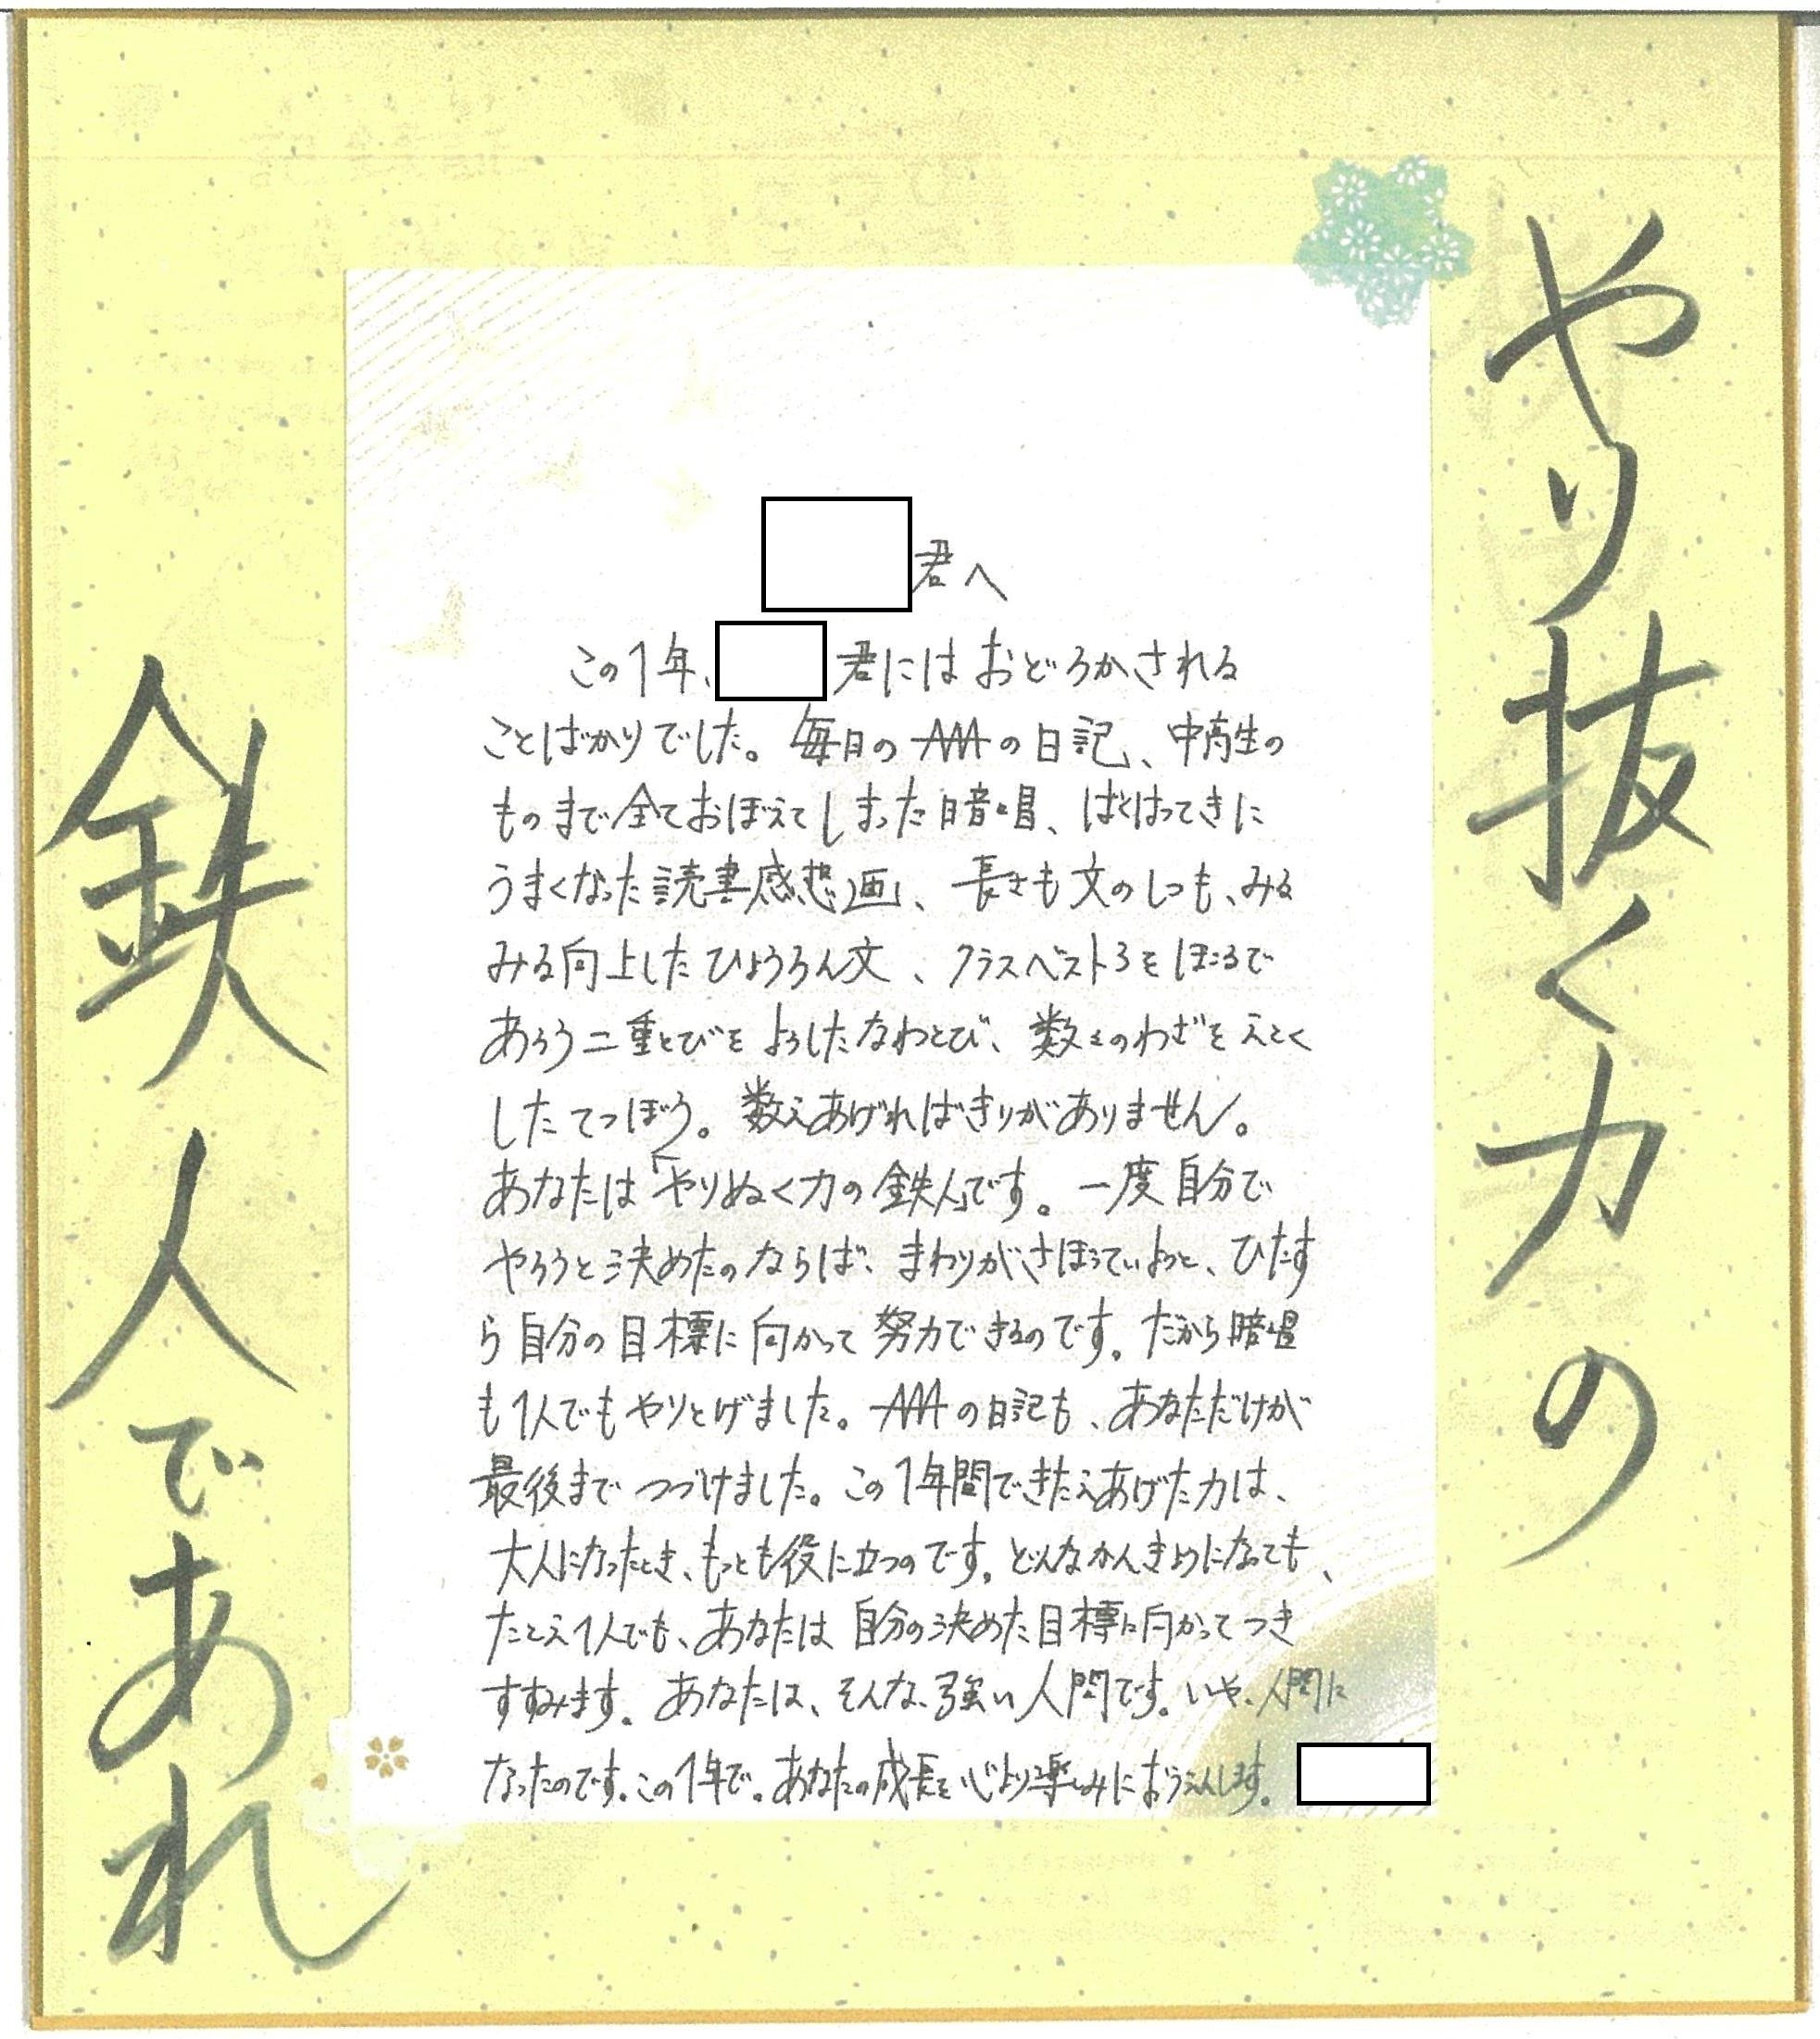 やり抜く力の
鉄人であれ
君へ
この1年、君にはおどろかされる
ことばかりでした。毎日のAAAの日記、中高生の
ものまで全ておぼえてしまった暗唱、ばくはつてきに
うまくなった読書感想画、長さも文のしつも、みる
みる向上したひょうろん文、クラスベスト3をほこるで
あろう二重とびをようしたなわとび、数々のわざをえとく
したてつぼう。数えあげればきりがありません。
あなたは「やりぬく力の鉄人」です。一度自分で
やろうと決めたのならば、まわりがさぼっていようと、ひたす
ら自分の目標に向かって努力できるのです。だから暗唱
も1人でもやりとげました。AAAの日記も、あなただけが
最後までつづけました。この1年間できたえあげた力は、
大人になったとき、もっとも役に立つのです。どんなかんきょうになっても、
たとえ1人でも、あなたは自分の決めた目標に向かってつき
すすみます。あなたは、そんな、強い人間です。いや、人間に
なったのです。この1年で。あなたの成長を心より楽しみにおうえんします。